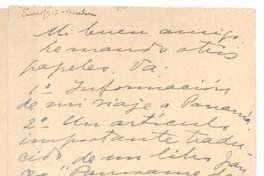 Mi buen amigo,
remando otros
papeles. Va:
1º Información
de mi viaje a Panamá.
2º Un artículo
importante tradu-
cido de un libro
"Panorama